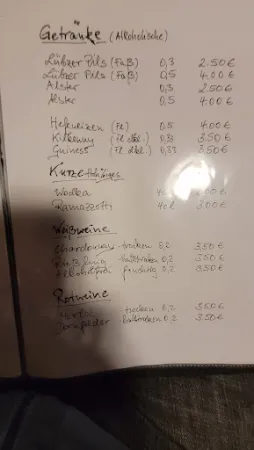 Getränke (Alkoholische)
Lübzer Pils (Faß) 0,3 2.50€
Lübzer Pils (Faß) 0,5 4.00€
Alster 0,3 2.50€
Alster 0,5 4.00€
Hefeweizen (Fl.) 0,5 4.00€
Kilkenny (Fl. 3.50€
Guiness (Fl. dkl.) 0,33 3.50€
Kurze
Wodka 4cl
Ramazzotti 4cl 3.00€
Weißweine
Chardonnay - trocken 0,2 3.50€
Riesling - halbtrocken 0,2 3.50€
0,2 3.50€
Rotweine
- trocken 0,2 3.50€
Dornfelder - halbtrocken 0,2 3.50€